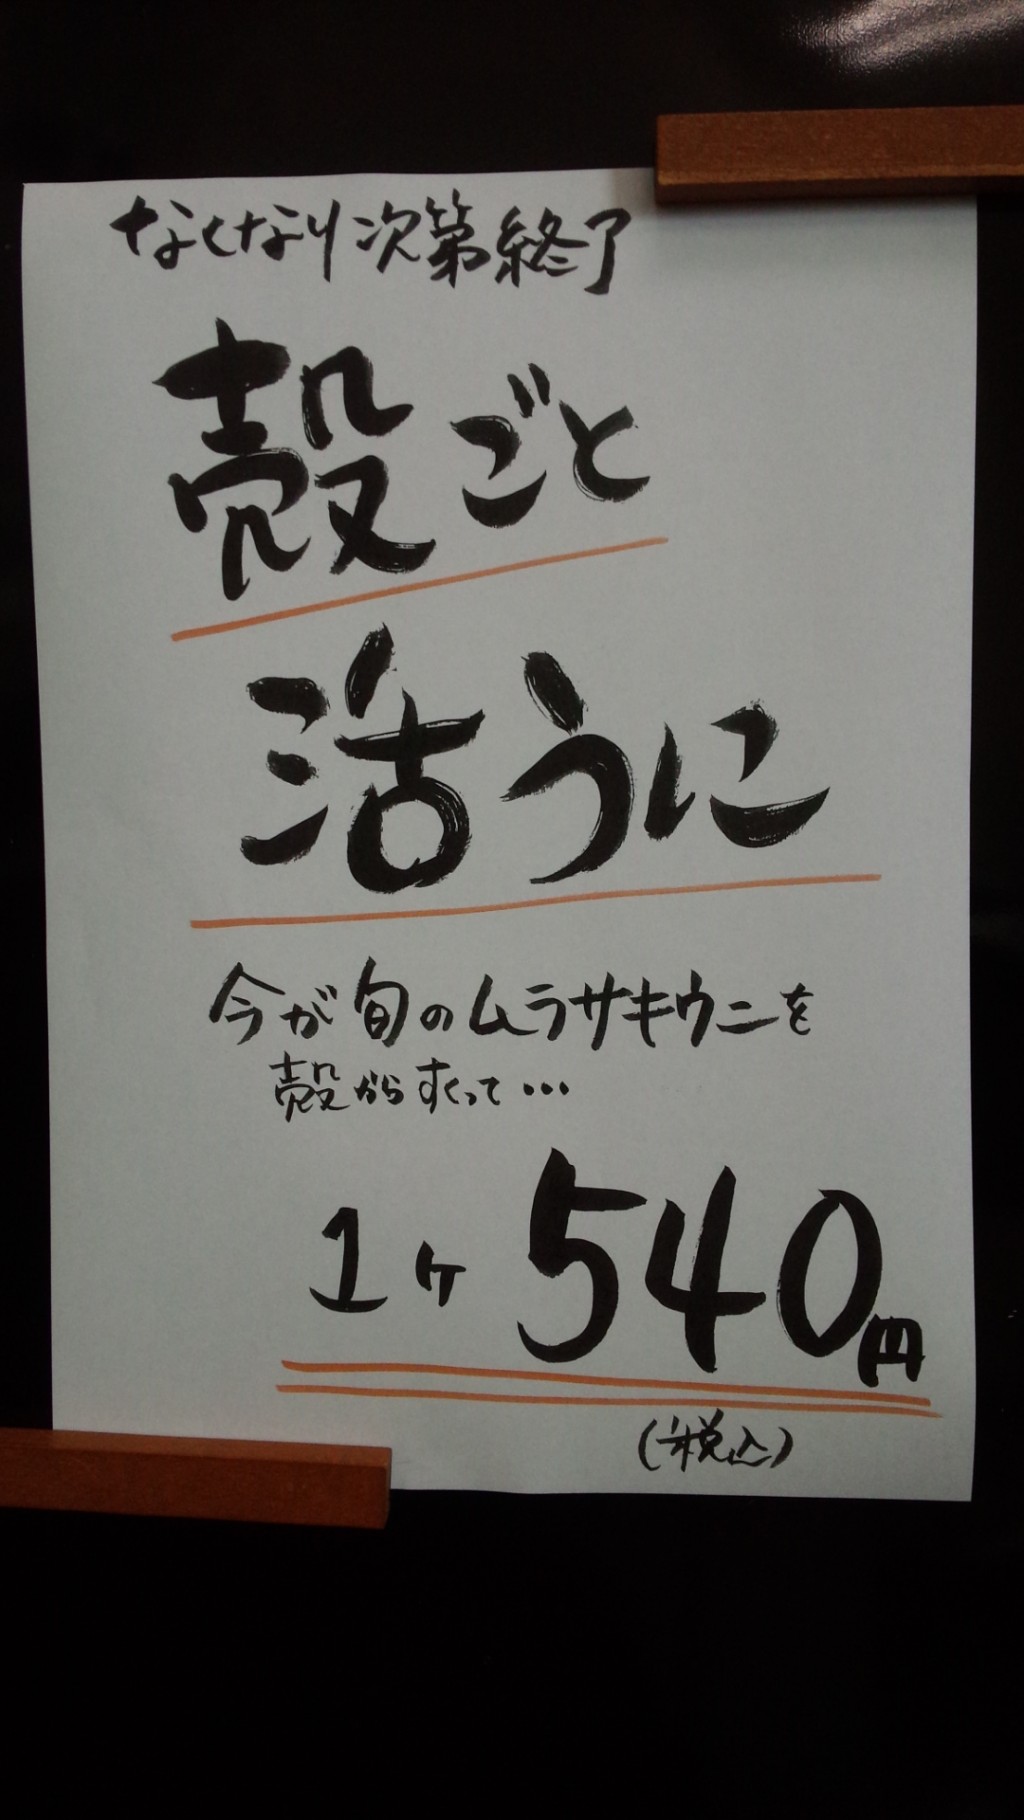 なくなり次第終了
殻ごと
活うに
今が旬のムラサキウニを
殻からすくって…
1ヶ540円
(税込)